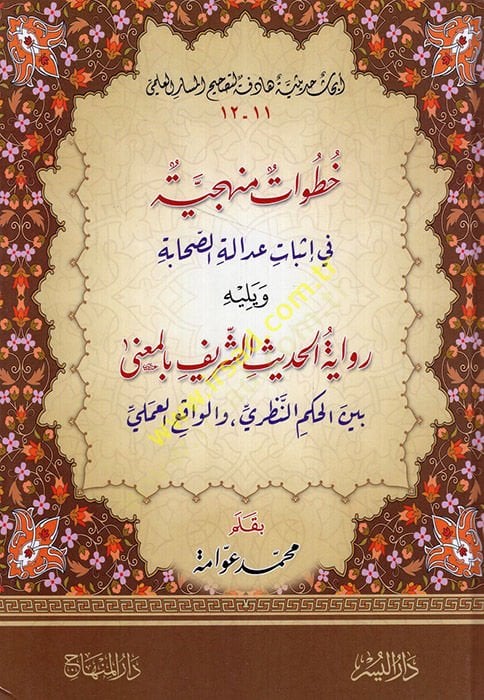 أبحاث حديثية هادفة لتصحيح المسار العلمي
١١-١٢
خُطُواتٌ منهجيَّةٌ
في إثباتِ عدالةِ الصَّحابةِ
وَيَلِيْهِ
روايةُ الحديثِ الشَّريفِ بالمعنى
بينَ الحكمِ النَّظريِّ، والواقعِ العمليِّ
بقلم
محمد عوّامة
دَارُ اليُسْر
دَارُ المِنْهَاج